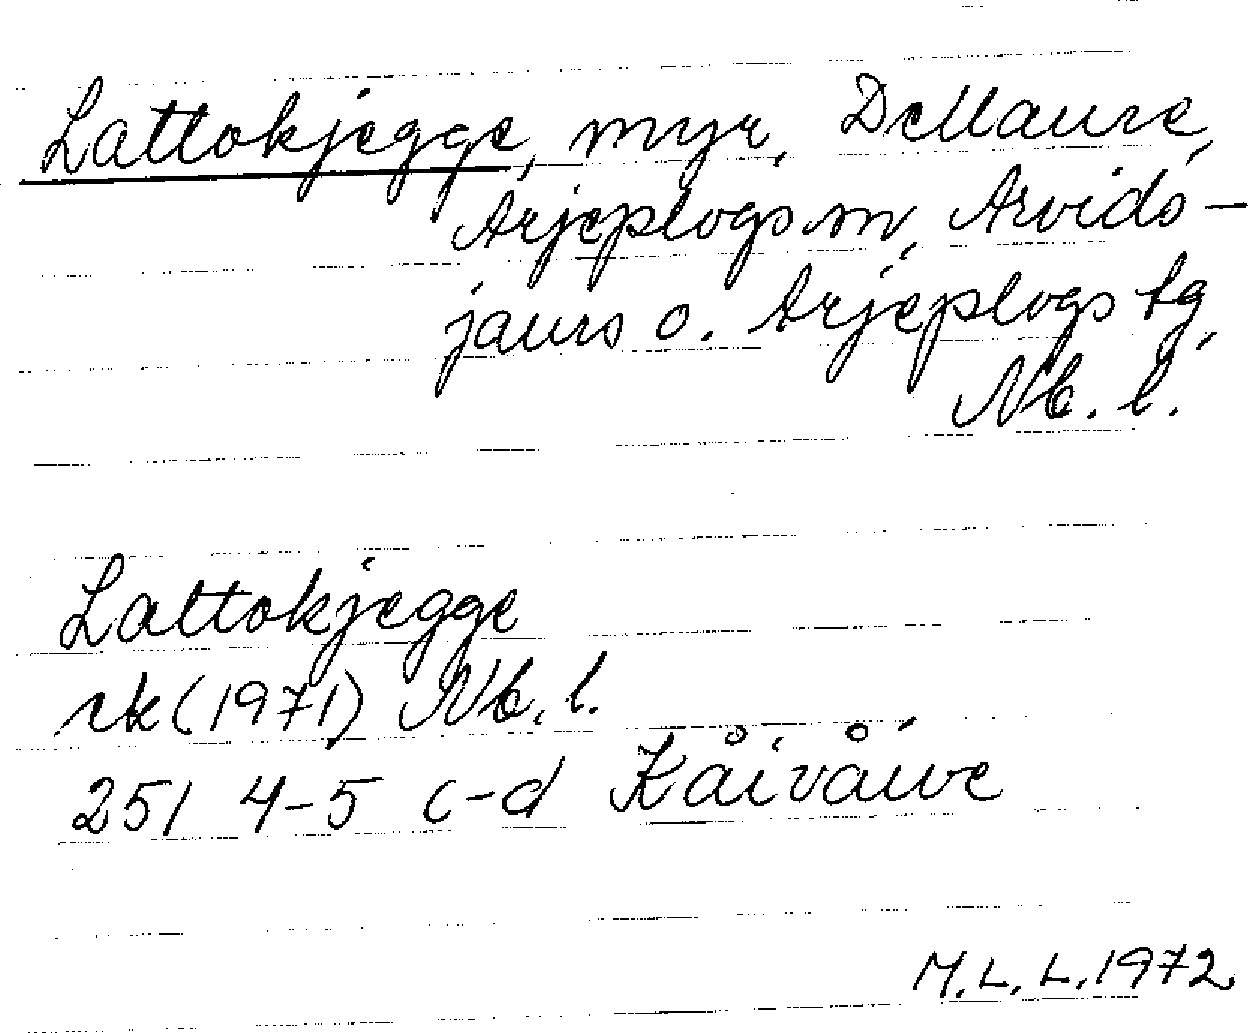 Lattokjegge, myr, Dellaure,
Arjeplogs sn, Arvids-
jaurs o. Arjeplogs tg,
Nb. l.
Lattokjegge
rk (1971) Nb. l.
251 4-5 c-d Kåivåive
M. L. L. 1972